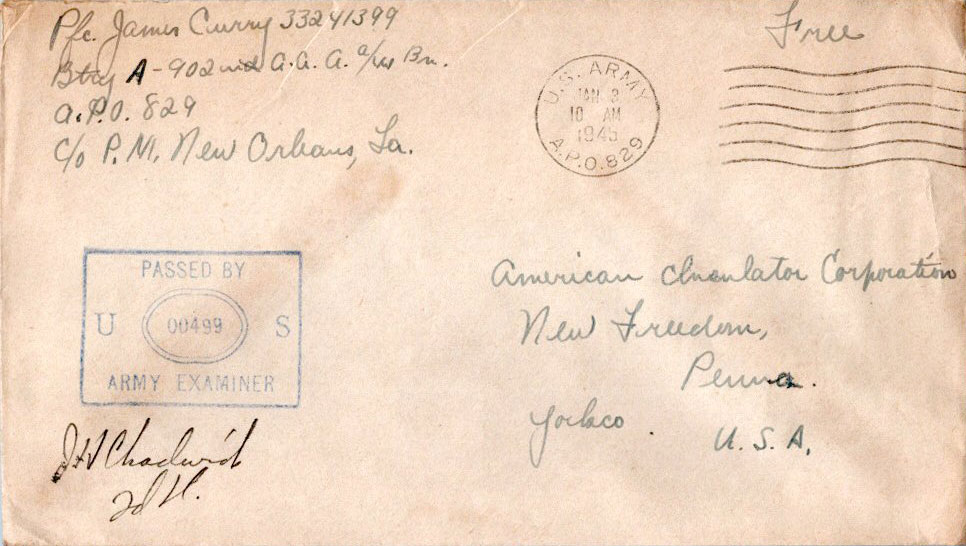 Pfc. James Curry 33241399
Btry A-902nd A.A.A. a/w Bn.
A.P.O. 829
c/o P.M. New Orleans, La.
Free
U.S. ARMY
JAN 2
10 AM
1945
A.P.O. 829
PASSED BY
U 00499 S
ARMY EXAMINER
American Insulator Corporation
New Freedom,
Penna.
York co.
U.S.A.
J H Chadwick